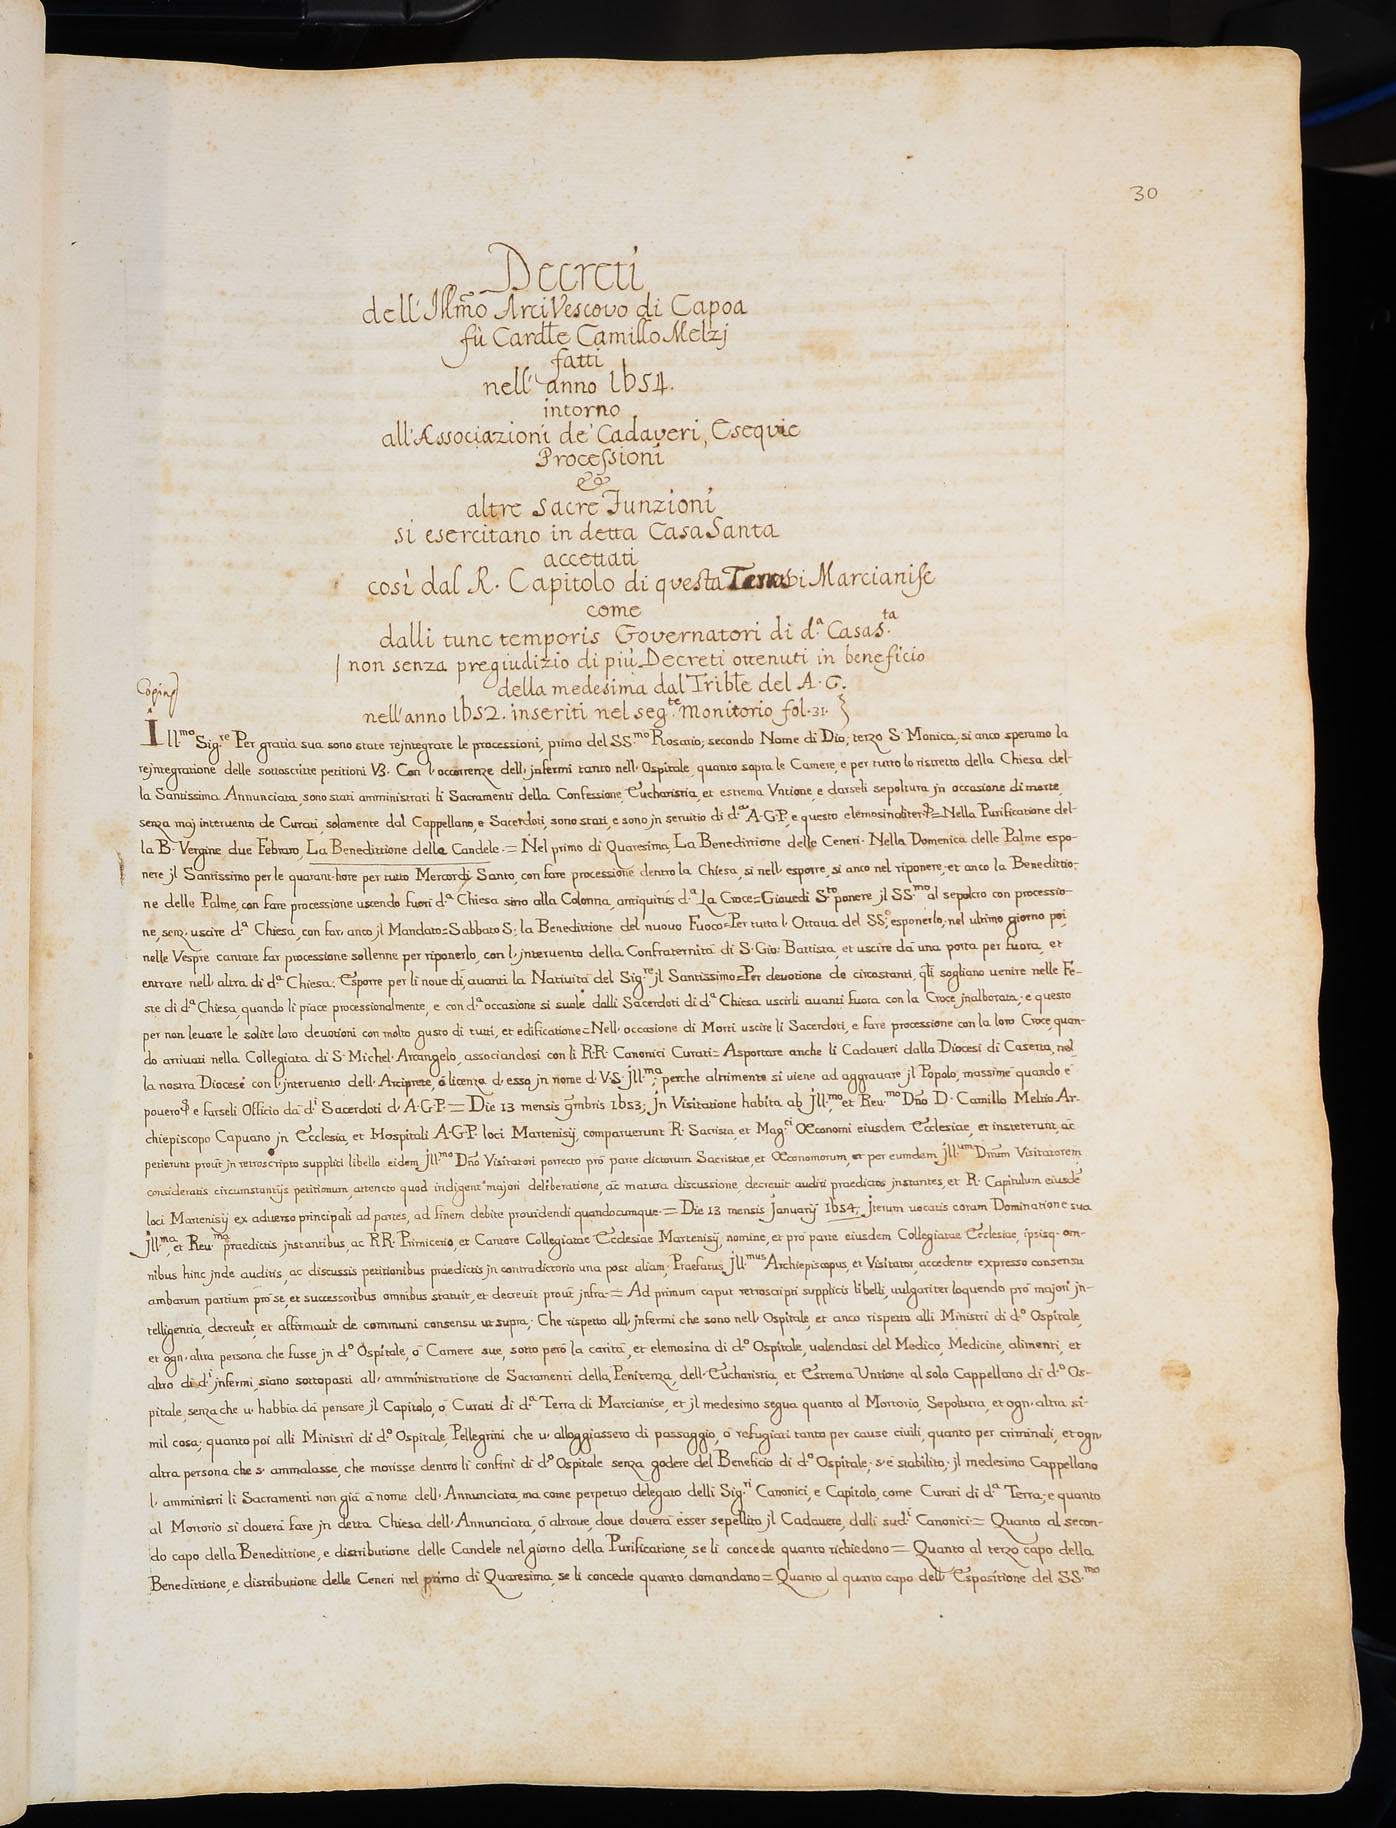 30
Decreti
dell'Illmo ArciVescovo di Capoa
fù Cardle Camillo Melzj
fatti
nell'anno 1654.
intorno
all'Associazioni de' Cadaveri, Esequie
Processioni
&
altre sacre Funzioni
si esercitano in detta Casa Santa
accettati
così dal R. Capitolo di questa Terra di Marcianise
come
dalli tunc temporis Governatori di d.a Casa S.ta
non senza pregiudizio di più Decreti ottenuti in beneficio
della medesima dal Trible del A.G.
nell'anno 1652. inseriti nel seg.te Monitorio fol. 31.
Copia
Ill.mo Sig.re Per gratia sua sono state rejntegrate le processioni, primo del SS.mo Rosario; secondo Nome di Dio; terzo S. Monica, si anco speramo la
rejntegratione delle sottoscritte petitioni V3. Con l'occorrenze dell'jnfermi tanto nell'Ospitale, quanto sopra le Camere, e per tutto lo ristretto della Chiesa del-
la Santissima Annunciata, sono stati amministrati li Sacramenti della Confessione, Eucharistia, et estrema Untione, e darseli sepoltura jn occasione di morte,
senza maj intervento de Curati, solamente dal Cappellano, e Sacerdoti, sono stati, e sono jn servitio di d.a A.G.P., e questo elemosinaliter = Nella Purificatione del-
la B. Vergine due Febraro, La Benedittione della Candele. = Nel primo di Quaresima, La Benedittione delle Ceneri. Nella Domenica delle Palme espo-
nere jl Santissimo per le quarant'hore per tutto Mercordi Santo, con fare processione dentro la Chiesa, si nell'esporre, si anco nel riponere, et anco la Benedittio-
ne delle Palme, con fare processione uscendo fuori d.a Chiesa sino alla Colonna, antiquitus d.a La Croce = Giovedi S.to ponere jl SS.mo al sepolcro con processio-
ne, senz'uscire d.a Chiesa, con far'anco jl Mandato = Sabbato S: la Benedittione del nuovo Fuoco = Per tutta l'Ottava del SS.o esponerlo, nel ultimo giorno poi
nelle Vespre cantate far processione sollenne per riponerlo, con l'jntervento della Confraternità di S. Gio: Battista, et uscire da una porta per fuora, et
entrare nell'altra di d.a Chiesa. Esporre per li nove dì, avanti la Natività del Sig.re jl Santissimo = Per devotione de circostanti, qli sogliano venire nelle Fe-
ste di d.a Chiesa, quando li piace processionalmente, e con d.a occasione si suole dalli Sacerdoti di d.a Chiesa uscirli avanti fuora con la Croce jnalborata, e questo
per non levare le solite loro devotioni con molto gusto di tutti, et edificatione = Nell'occasione di Morti uscire li Sacerdoti, e fare processione con la loro Croce, quan-
do arrivati nella Collegiata di S. Michel'Arcangelo, associandosi con li R.R. Canonici Curati = Asportare anche li Cadaveri dalla Diocesi di Caserta, nel-
la nostra Diocese con l'jntervento dell'Arciprete, ò licenza d'esso jn nome d. V.S. jll.ma; perche altrimente si viene ad aggravare jl Popolo, massime quando è
povero e farseli Officio da d.i Sacerdoti d. A.G.P. = Die 13 mensis 9mbris 1653; jn Visitatione habita ab jll.mo et Reu.mo Dño D. Camillo Meltio Ar-
chiepiscopo Capuano jn Ecclesia, et Hospitali A.G.P. loci Martenisij, comparuerunt R. Sacrista, et Mag.ci Œconomi eiusdem Ecclesiae, et insteterunt, ac
petierunt prout jn retroscripto supplici libello eidem jll.mo Dño Visitatori porrecto pro parte dictorum Sacristae, et Œconomorum, et per eumdem jll.um Dnum Visitatorem
consideratis circumstantijs petitionum, attento quod indigent majori deliberatione, ac matura discussione, decreuit audiri praedictos jnstantes, et R. Capitulum eiusde
loci Martenisij ex adverso principali ad partes, ad finem debite providendi quandocumque. = Die 13 mensis januarij 1654; jterum vocatis coram Dominatione sua
jll.ma, et Reu.ma praedictis jnstantibus, ac RR. Primicerio, et Cantore Collegiatae Ecclesiae Martenisij, nomine, et pro parte eiusdem Collegiatae Ecclesiae, ipsisq. om-
nibus hinc jnde auditis, ac discussis petitionibus praedictis jn contradictorio una post aliam. Praefatus jll.mus Archiepiscopus, et Visitator, accedente expresso consensu
ambarum partium pro se, et successoribus omnibus statuit, et decreuit prout jnfra = Ad primum caput retroscripti supplicis libelli, vulgariter loquendo pro majori jn-
telligentia, decreuit, et affirmavit de communi consensu ut supra. Che rispetto all'jnfermi che sono nell'Ospitale, et anco rispetto alli Ministri di d.o Ospitale,
et ogn'altra persona che fusse jn d.o Ospitale, ò Camere sue, sotto però la carità, et elemosina di d.o Ospitale, valendosi del Medico, Medicine, alimenti, et
altro di d.i jnfermi, siano sottoposti all'amministratione de Sacramenti della Penitenza, dell'Eucharistia, et Estrema Untione al solo Cappellano di d.o Os-
pitale, senza che u'habbia da pensare jl Capitolo, ò Curati di d.a Terra di Marcianise, et jl medesimo segua quanto al Mortorio, Sepoltura, et ogn'altra si-
mil cosa; quanto poi alli Ministri di d.o Ospitale, Pellegrini che u'alloggiassero di passaggio, ò refugiati tanto per cause civili, quanto per criminali, et ogn'
altra persona che s'ammalasse, che morisse dentro li confini di d.o Ospitale senza godere del Beneficio di d.o Ospitale; s'è stabilito, jl medesimo Cappellano
l'amministri li Sacramenti non già à nome dell'Annunciata, ma come perpetuo delegato delli Sig.ri Canonici, e Capitolo, come Curati di d.a Terra; e quanto
al Mortorio si dovera fare jn detta Chiesa dell'Annunciata, ò altrove, dove dovera esser sepellito jl Cadavere, dalli sud.i Canonici = Quanto al secon-
do capo della Benedittione, e distributione delle Candele nel giorno della Purificatione, se li concede quanto richiedono = Quanto al terzo capo della
Benedittione, e distributione delle Ceneri nel primo di Quaresima, se li concede quanto domandano = Quanto al quarto capo dell'Espositione del SS.mo